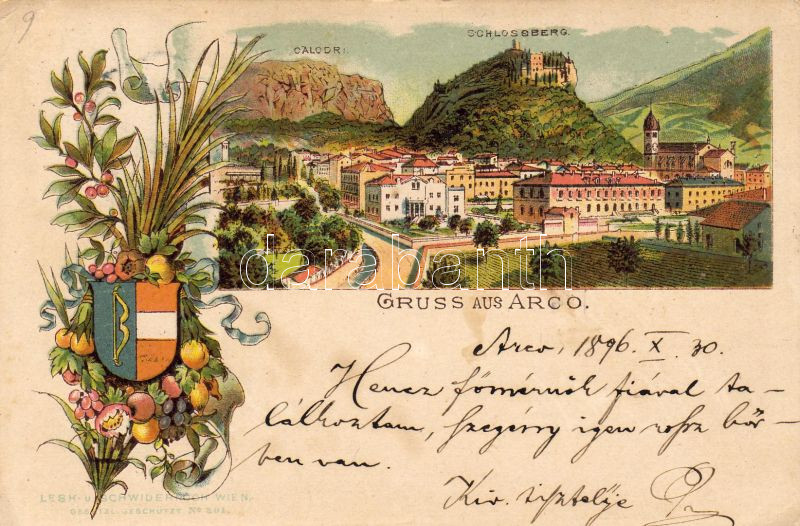 9
CALODRI.
SCHLOSSBERG.
darabanth
GRUSS AUS ARCO.
Arco, 1896. X. 30.
Hencz főmérnök fiával ta-
lálkoztam, szegény igen rossz bőr-
ben van.
Kiv. tisztelője
LESK u. SCHWIDERNOCH WIEN.
GESETZL. GESCHÜTZT No